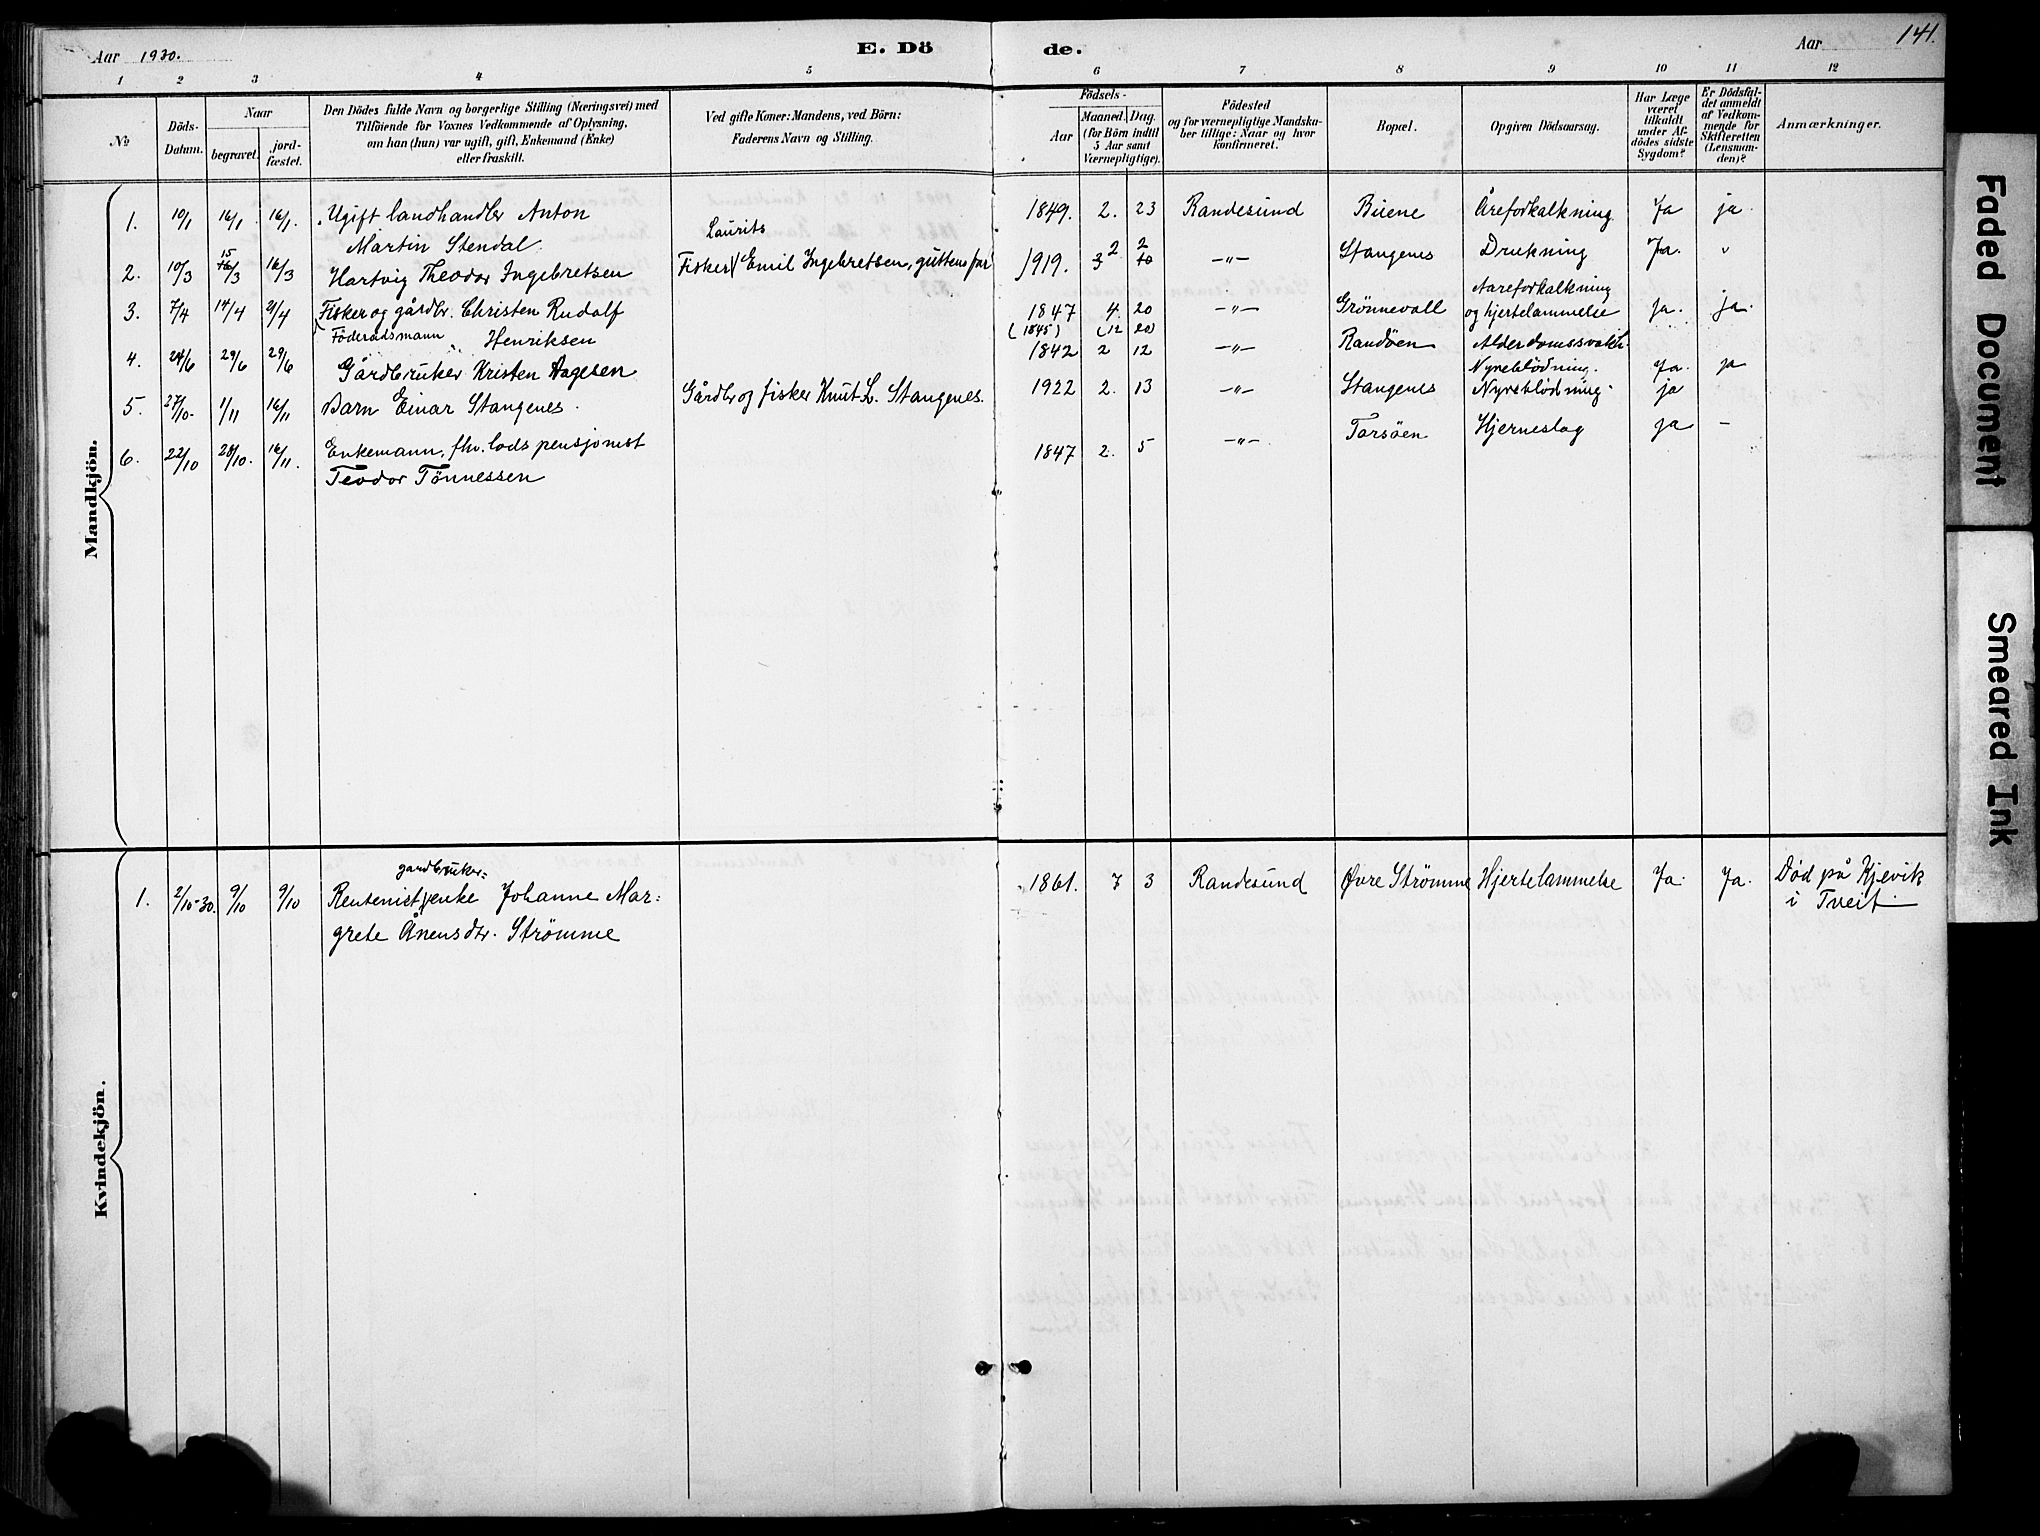 Aar 1930. E. Dö de. Aar 141.
1 2 3 4 5 6 7 8 9 10 11 12
No
Döds-Datum.
Naar
begravet.
jord-fæstet.
Den Dödes fulde Navn og borgerlige Stilling (Næringsvei) med
Tilföiende for Voxnes Vedkommende af Oplysning,
om han (hun) var ugift, gift, Enkemand (Enke)
eller fraskilt.
Ved gifte Koner: Mandens, ved Börn:
Faderens Navn og Stilling.
Födsels-
Aar
Maaned. Dag.
(for Börn indtil
5 Aar samt
Værnepligtige).
Födested
og for værnepligtige Mandska-
ber tillige: Naar og hvor
konfirmeret.
Bopæl.
Opgiven Dödsaarsag.
Har Læge
været
tilkaldt
under Af-
dödes sidste
Sygdom?
Er Dödsfal-
det anmeldt
af Vedkom-
mende for
Skifteretten
(Lensman-
den)?
Anmærkninger.
Mandkjön.
1. 10/1 16/1 16/1. Ugift landhandler Anton 1849. 2. 23 Randesund Buene Åreforkalkning Ja ja.
Martin Stendal.
Laurits
2. 10/3 15 16/3 16/3 Hartvig Theodor Ingebretsen Fisker Emil Ingebretsen, guttens far 1919. 3 2 2 10 -"- Stangenes Drukning Ja. "
Aareforkalkning
3. 7/4 14/4 21/4 Fisker og gårdbr. Christen Rudolf 1847 4. 20 -"- Grönnevoll og hjertelammelse ja. ja.
(Föderådsmann Henriksen (1845) (12 20)
4. 24/6 29/6 29/6 Gårdbruker Kristen Aagesen 1842 2 12 -"- Randöen Alderdomssvakh. Ja. ja
Nyreblödning.
5. 27/10. 1/11 16/11 Barn Einar Stangenes. Gårdbr og fisker Knut L. Stangenes. 1922 2. 13 -"- Stangenes Nyreblödning. ja
6. 22/10 28/10. 16/11. Enkemann, fhv. lods pensjonist 1847 2. 5 -"- Torsöen Hjerneslag ja -
Teodor Tönnessen
Kvindekjön.
gardbruker=
1. 2/10-30. 9/10 9/10 Rentenist enke Johanne Mar= 1861. 7 3 Randesund Øvre Strömme Hjertelammelse Ja. Ja. Död på Kjevik
grete Ånensdtr. Strömme i Tveit.
Faded Document
Smeared Ink